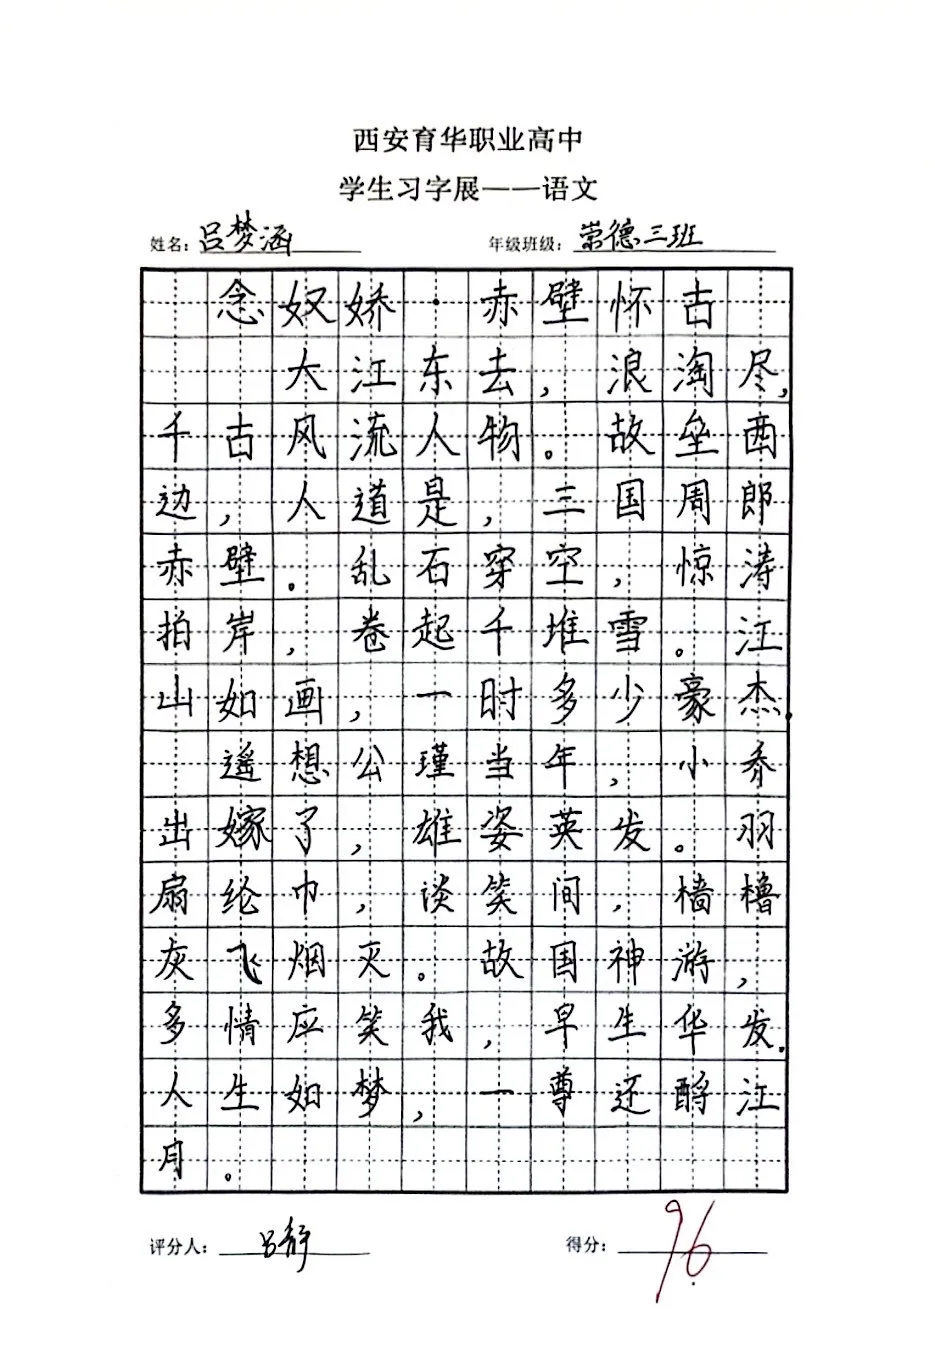 西安育华职业高中
学生习字展——语文
姓名：吕梦涵 年级班级：崇德三班
念奴娇·赤壁怀古
大江东去，浪淘尽，
千古风流人物。故垒西
边，人道是，三国周郎
赤壁。乱石穿空，惊涛
拍岸，卷起千堆雪。江
山如画，一时多少豪杰.
遥想公瑾当年，小乔
出嫁了，雄姿英发。羽
扇纶巾，谈笑间，樯橹
灰飞烟灭。故国神游，
多情应笑我，早生华发.
人生如梦，一尊还酹江
月。
评分人：吕静 得分：96